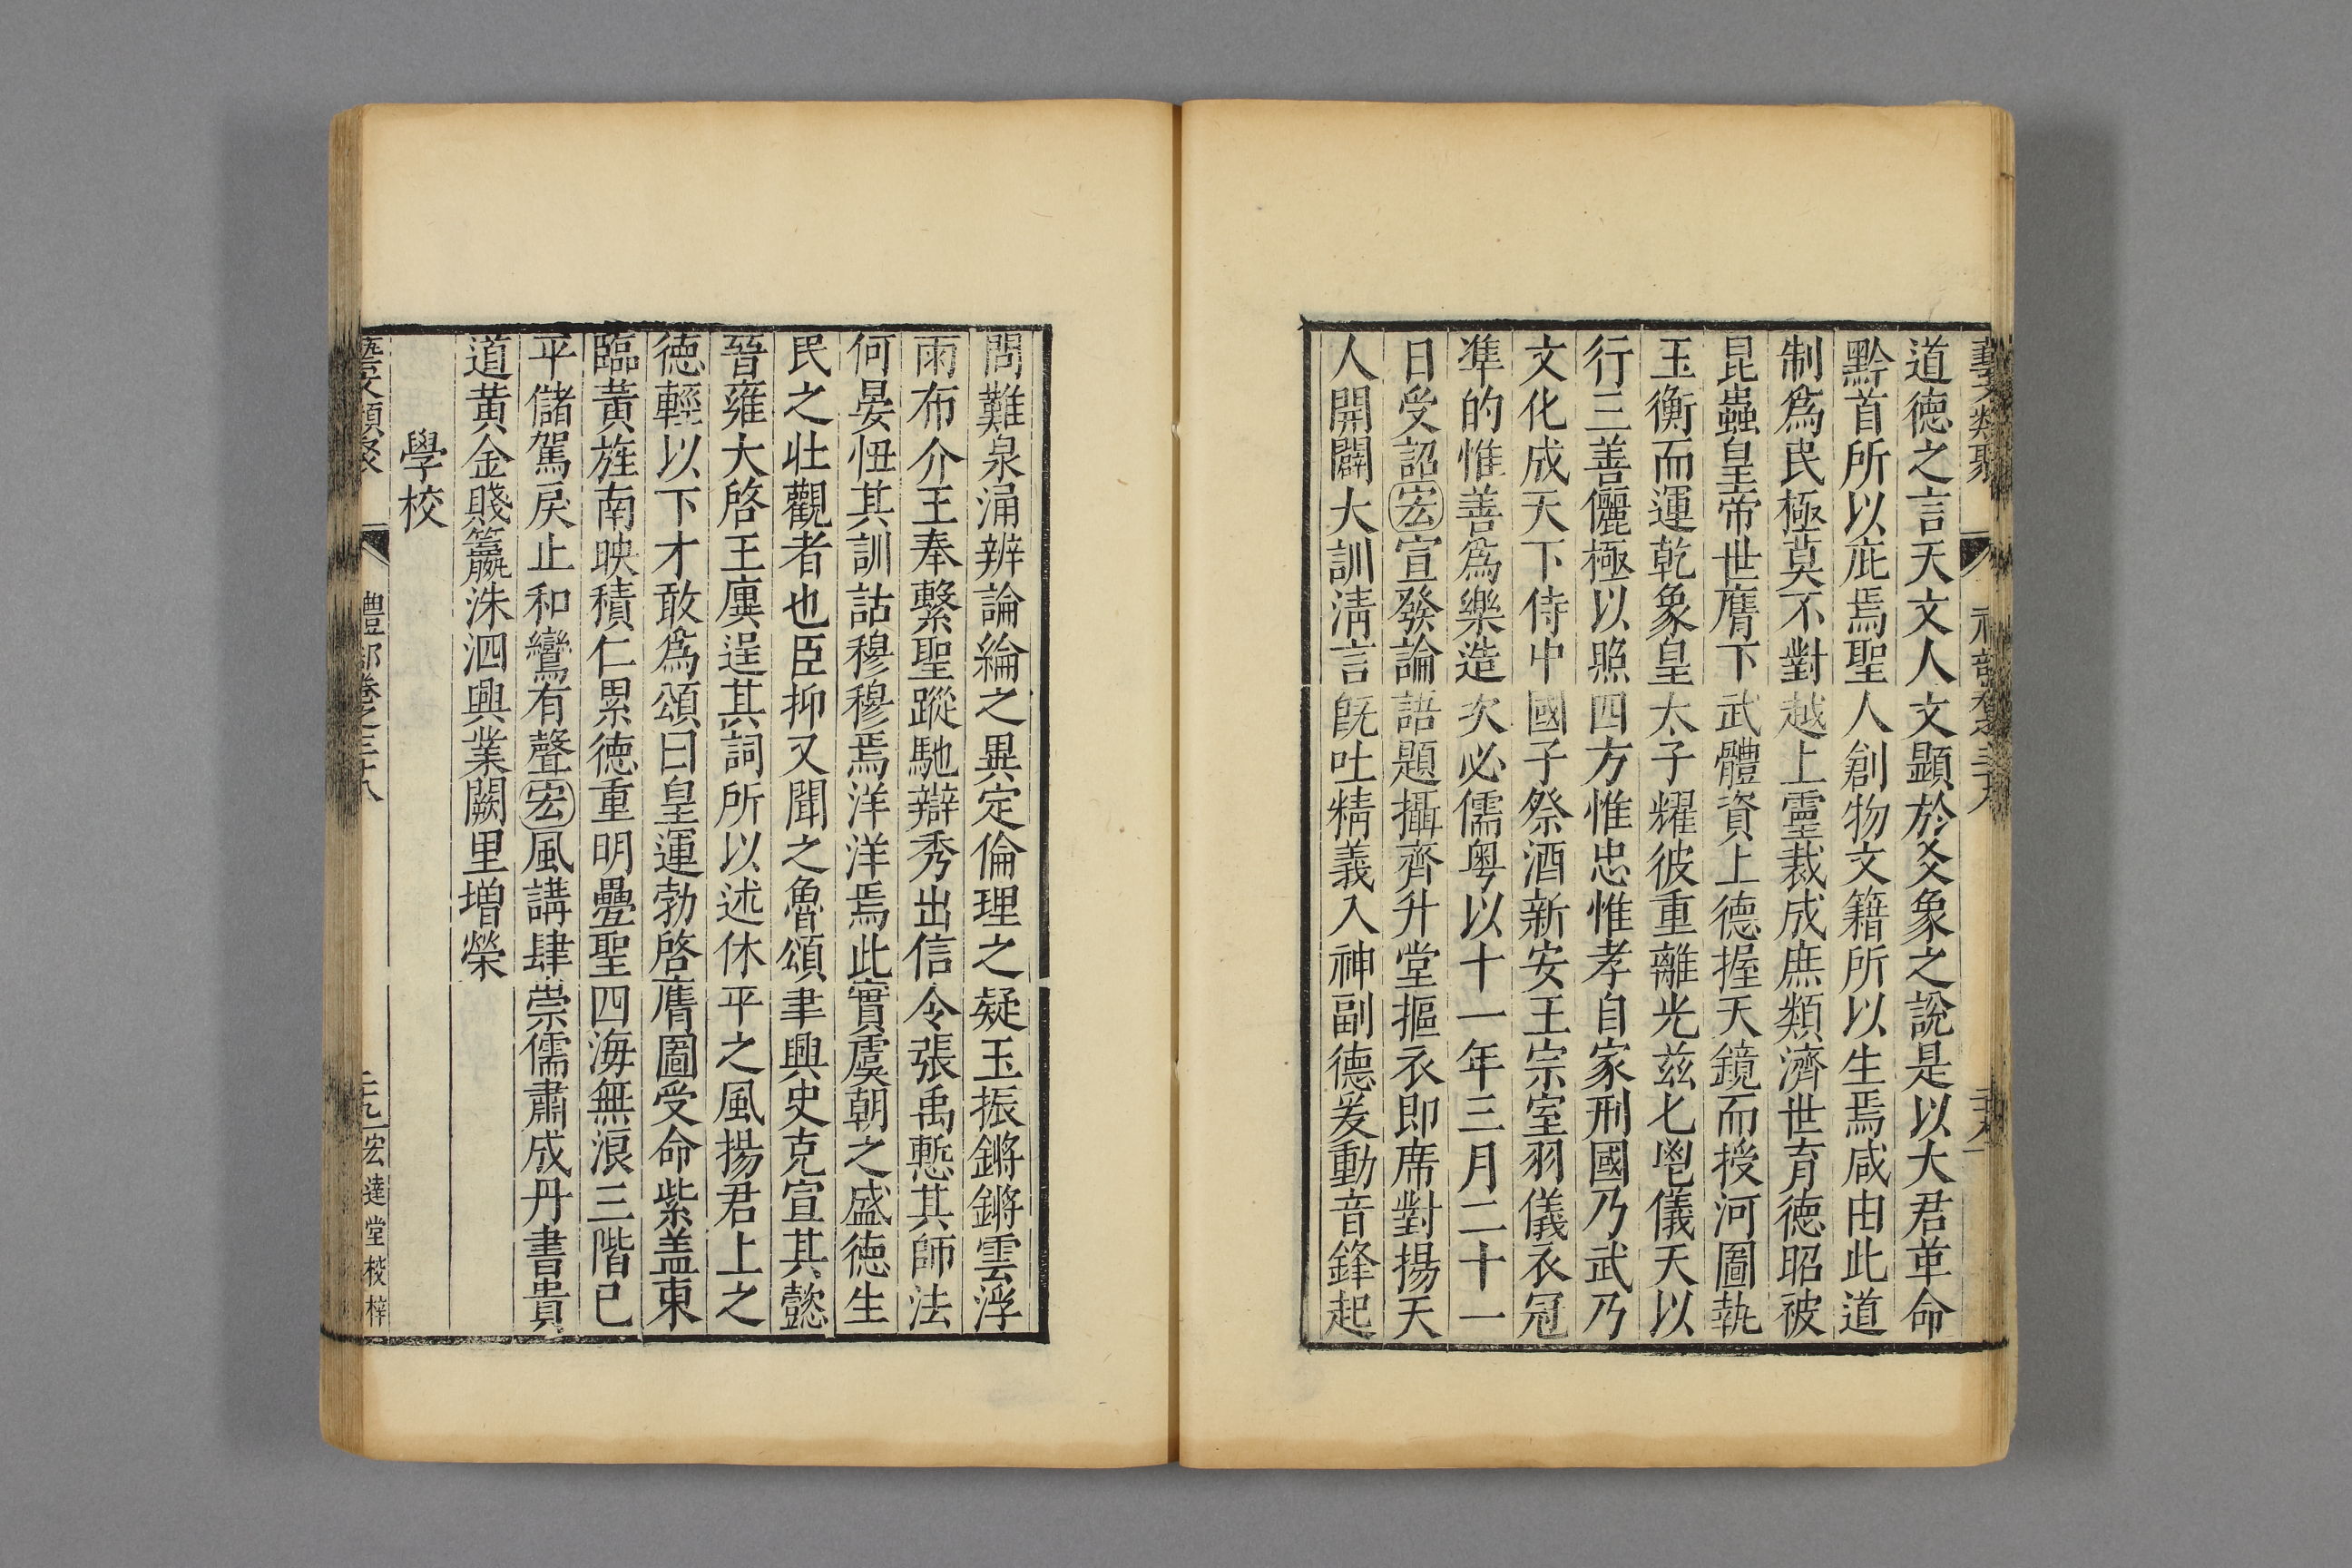 道德之言天文人文顯於爻象之說是以大君革命
黔首所以庇焉聖人創物文籍所以生焉咸由此道
制爲民極莫不對越上靈裁成庶類濟世育德昭被
昆蟲皇帝世膺下武體資上德握天鏡而授河圖執
玉衡而運乾象皇太子耀彼重離光茲匕鬯儀天以
行三善儷極以照四方惟忠惟孝自家刑國乃武乃
文化成天下侍中國子祭酒新安王宗室羽儀衣冠
準的惟善爲樂造次必儒粤以十一年三月二十一
日受詔宏宣發論語題攝齊升堂摳衣即席對揚天
人開闢大訓淸言旣吐精義入神副德爰動音鋒起
問難泉涌辨論綸之異定倫理之疑玉振鏘鏘雲浮
雨布介王奉繫聖蹤馳辯秀出信令張禹慙其師法
何晏忸其訓詁穆穆焉洋洋焉此實虞朝之盛德生
民之壯觀者也臣抑又聞之魯頌聿興史克宣其懿
晉雍大啓王廙逞其詞所以述休平之風揚君上之
德輕以下才敢爲頌曰皇運勃啓膺圖受命紫盖東
臨黃旌南映積仁累德重明疊聖四海無浪三階已
平儲駕戾止和鸞有聲宏風講肆崇儒肅成丹書貴
道黃金賤籯洙泗興業闕里增榮
學校
藝文類聚
禮部卷之三十八
宏達堂校梓